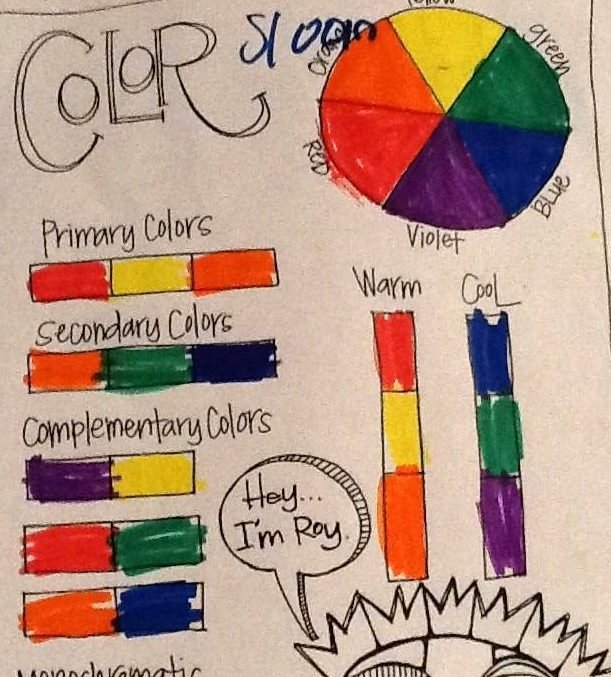 COLOR
Sloan
Yellow
Orange
green
RED
Blue
Violet
Primary Colors
Secondary Colors
Complementary Colors
Warm
Cool
Hey...
I'm Roy.
Monochromatic